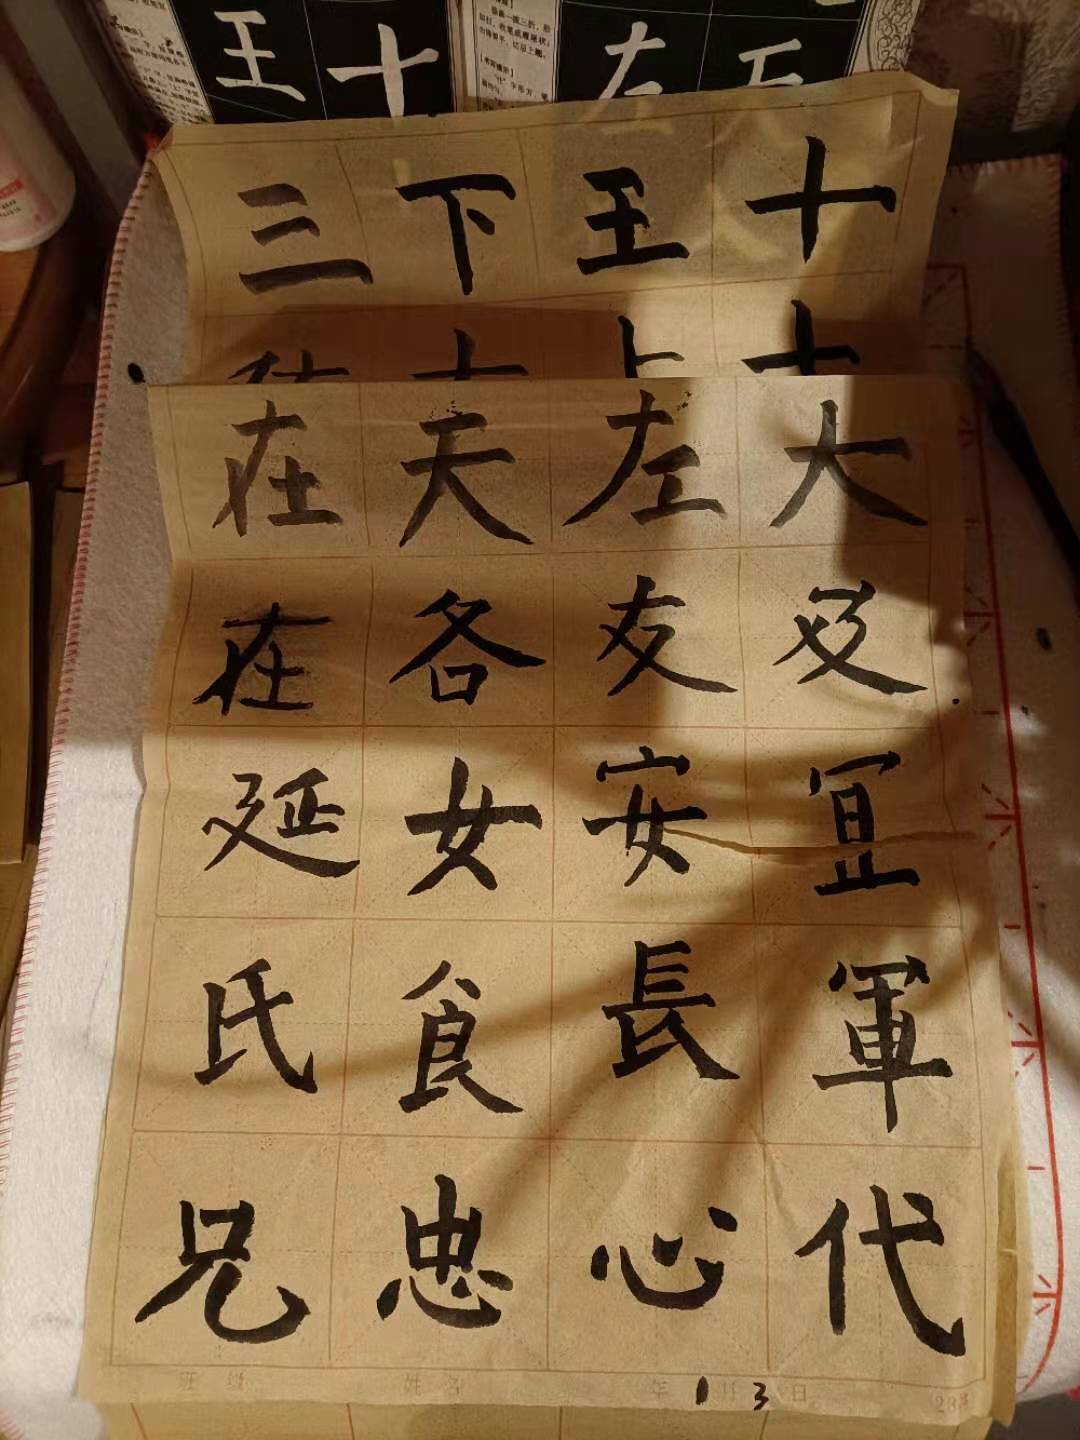 王 十 左
三 下 王 十
在 天 左 大
在 各 友 及
延 女 安 宜
氏 食 長 軍
兄 忠 心 代
班级 姓名 年 1月3日